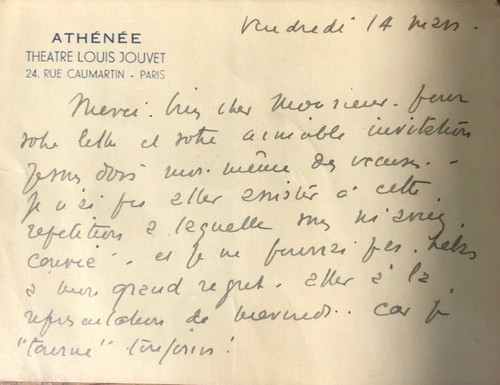 ATHÉNÉE
THEATRE LOUIS JOUVET
24, RUE CAUMARTIN - PARIS
Vendredi 14 mars.
Merci. bien cher Monsieur. pour
votre lettre et votre aimable invitation
Je vous dois moi-même des excuses. -
Je n'ai pu aller assister à cette
repetition à laquelle vous m'aviez
conviée - et je ne pourrai pas. helas
à mon grand regret. aller à la
representation de mercredi.. car je
"tourne" toujours!